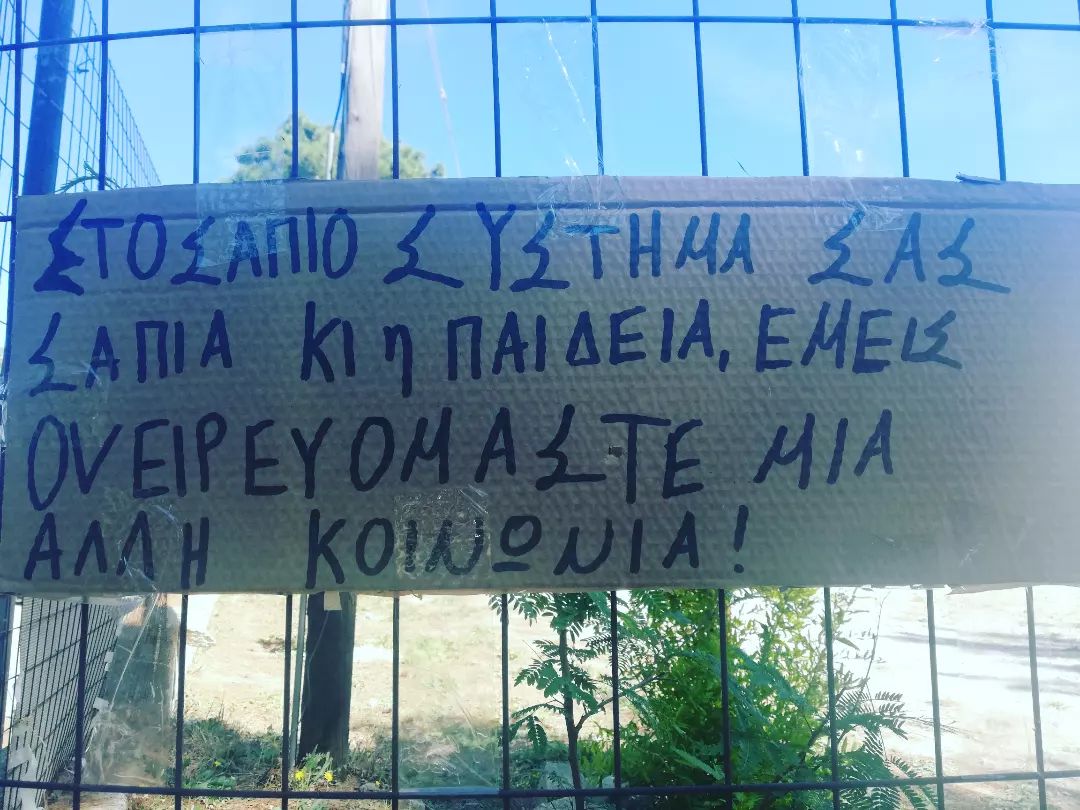 ΣΤΟ ΣΑΠΙΟ ΣΥΣΤΗΜΑ ΣΑΣ
ΣΑΠΙΑ ΚΙ η ΠΑΙΔΕΙΑ, ΕΜΕΙΣ
ΟΝΕΙΡΕΥΟΜΑΣΤΕ ΜΙΑ
ΑΛΛΗ ΚΟΙΝΩΝΙΑ!